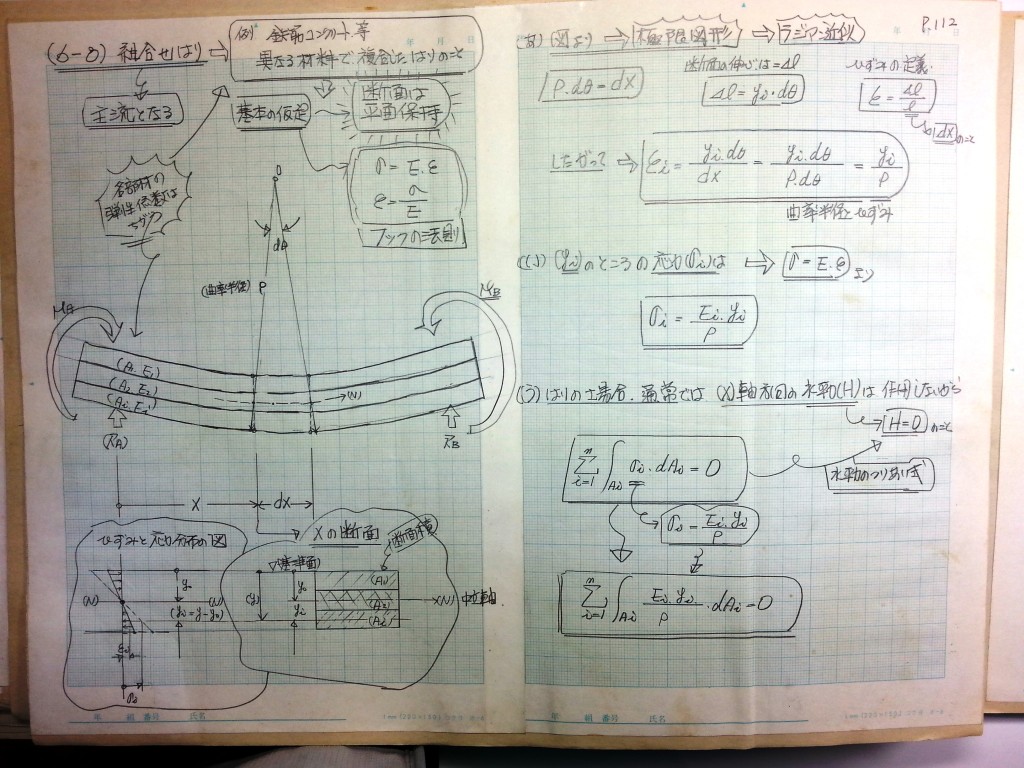 P.112
(6-8) 組合せはり ⇒
例 鉄筋コンクリート等
異なる材料で複合したはりのこと
主流となる
基本の仮定
断面は
平面保持
各部材の
弾性係数は
ちがう
σ = E.ε
ε = σ/E
フックの法則
O
dθ
(曲率半径) ρ
MA
MB
(A1.E1)
(A2.E2)
(Ai.Ei)
(N)
(RA)
RB
X
dx
ひずみと応力分布の図
Xの断面
断面積
▽基準面
(N)
(N)
y0
(yi=y-y0)
εi
σi
(y)
y0
yi
(A1)
(A2)
(Ai)
X(N) 中立軸
年 組 番号 氏名
(あ) (図より) ⇒ 極限図形 ⇒ ラジアン近似
ρ.dθ=dx
断面の伸びは=Δl
Δl=yi.dθ
ひずみの定義.
ε=Δl/l
dxのこと
したがって ⇒ εi = yi.dθ/dx = yi.dθ/ρ.dθ = yi/ρ
曲率半径とひずみ
(い) (yi)のところの応力(σi)は ⇒ σ=E.ε より
σi = Ei.yi/ρ
(う) はりの場合、通常では (X)軸方向の水平力(H)は作用しないから
H=0 のこと
Σ(i=1→n) ∫Ai σi.dAi = 0
水平力のつりあい式
σi = Ei.yi/ρ
Σ(i=1→n) ∫Ai Ei.yi/ρ.dAi = 0
年 組 番号 氏名